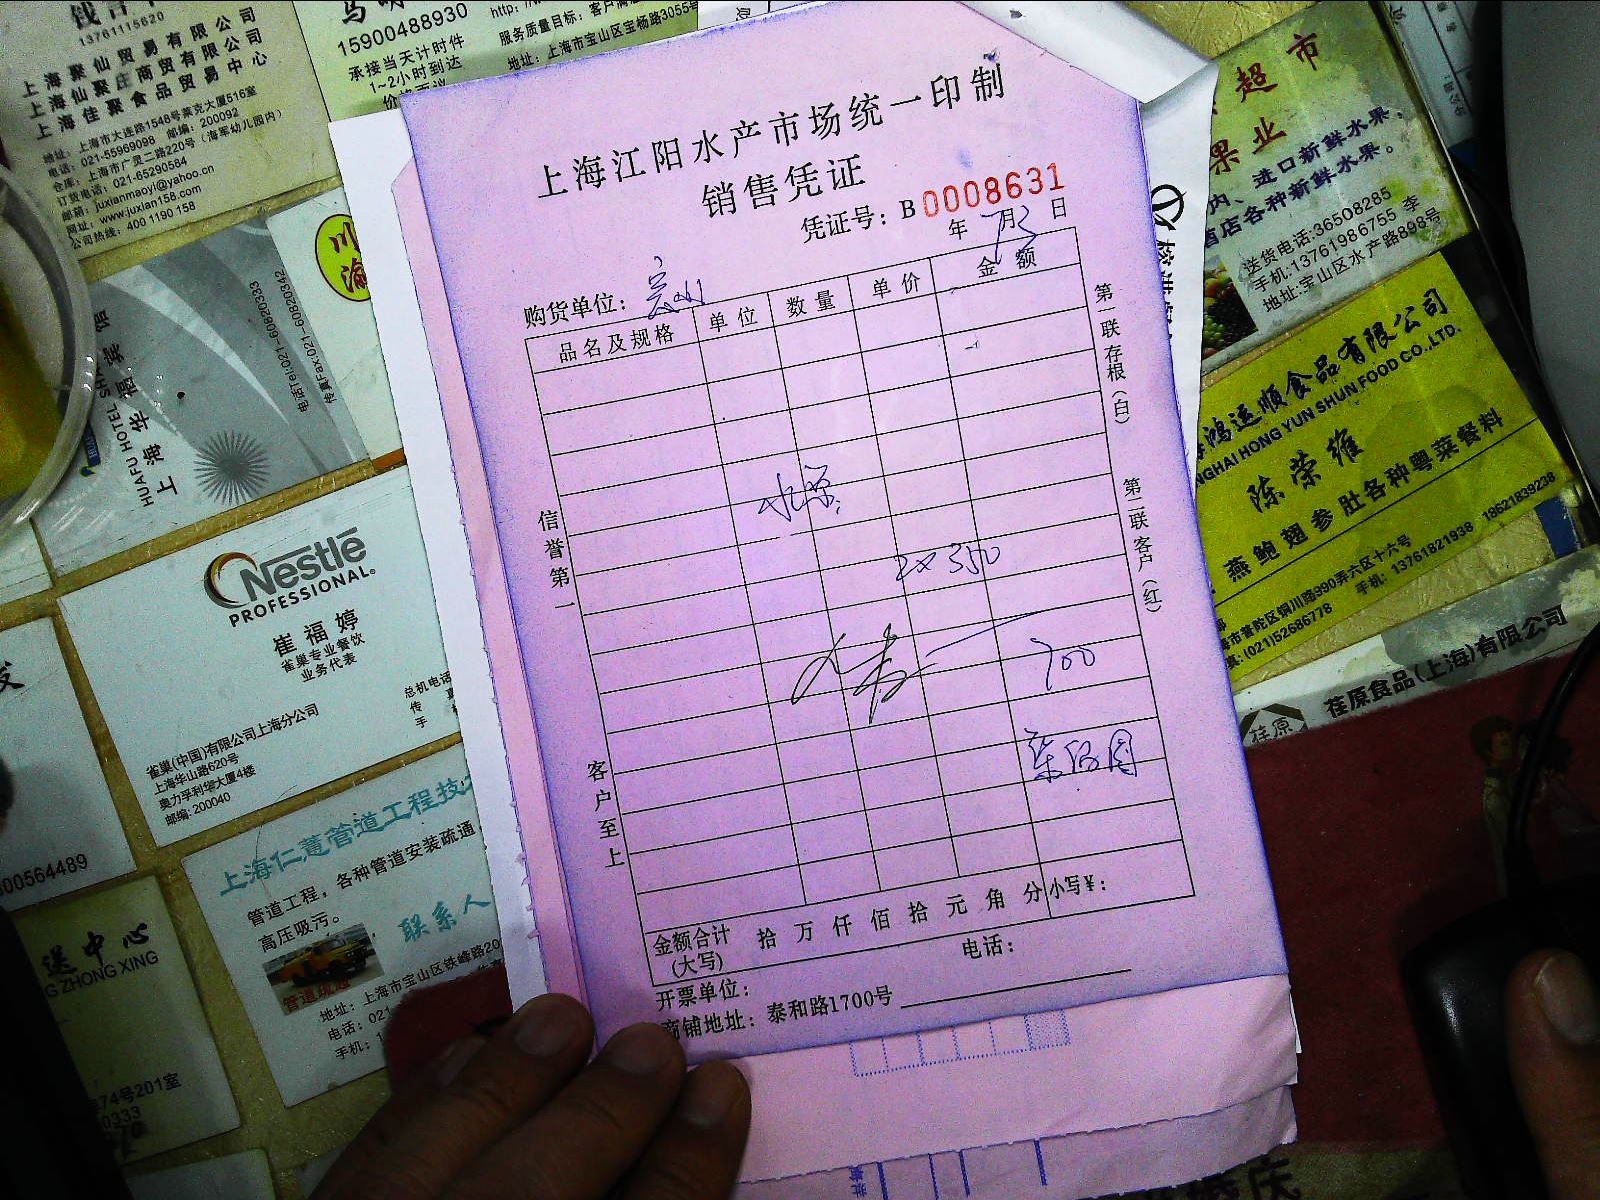 13761115620
上海聚仙贸易有限公司
上海仙聚庄商贸有限公司
上海佳聚食品贸易中心
地址：上海市大连路1548号莱克大厦516室
电话：021-55969098 邮编：200092
仓库：上海市广灵二路220号（海军幼儿园内）
订货电话：021-65290584
邮箱：juxianmaoyi@yahoo.cn
网址：www.juxian158.com
公司热线：400 1190 158
15900488930
承接当天计时件
1~2小时到达
服务质量目标：客户满
地址：上海市宝山区宝杨路3055号
川
渝
HUAFU HOTEL SH
上海华福宾馆
电话Tel:021-60820333
传真Fax:021-60820342
Nestlé
PROFESSIONAL.
崔福婷
雀巢专业餐饮
业务代表
总机电话
传
手
雀巢(中国)有限公司上海分公司
上海华山路620号
奥力孚利华大厦4楼
邮编: 200040
00564489
上海仁薏管道工程技
管道工程，各种管道安装疏通
高压吸污。
联系人
管道疏通
地址：上海市宝山区铁峰路20
电话：021
手机：1
送中心
G ZHONG XING
74号201室
0333
上海江阳水产市场统一印制
销售凭证
凭证号：B 0008631
年 月 日
购货单位：
品名及规格 单位 数量 单价 金额
2×350
700
信誉第一
客户至上
第一联存根（白）
第二联客户（红）
金额合计
(大写)
拾 万 仟 佰 拾 元 角 分 小写¥：
开票单位： 电话：
商铺地址：泰和路1700号
超市
果业
内、进口新鲜水果、
酒店各种新鲜水果。
送货电话:36508285
手机:13761986755 李
地址:宝山区水产路898号
海鸿运顺食品有限公司
NGHAI HONG YUN SHUN FOOD CO.,LTD.
陈荣维
燕鲍翅参肚各种粤菜餐料
海市普陀区铜川路990弄六区十六号
(021)52686778 手机：13761821938 18621839238
荏原食品(上海)有限公司
荏原